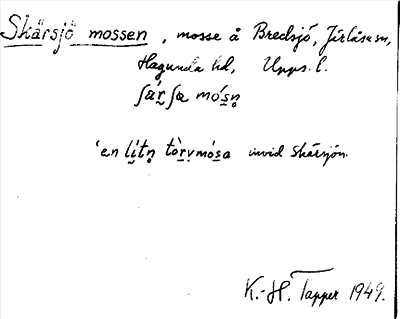 Skärsjö mossen, mosse å Bredsjö, Järlåsa sn,
Hagunda hd, Upps. l.
ʃǽr̥ʃœ mós̠n̥
'en lít̠n̥ tòrv̥mós̠a invid Skärsjön.
K.-H. Tapper 1949.